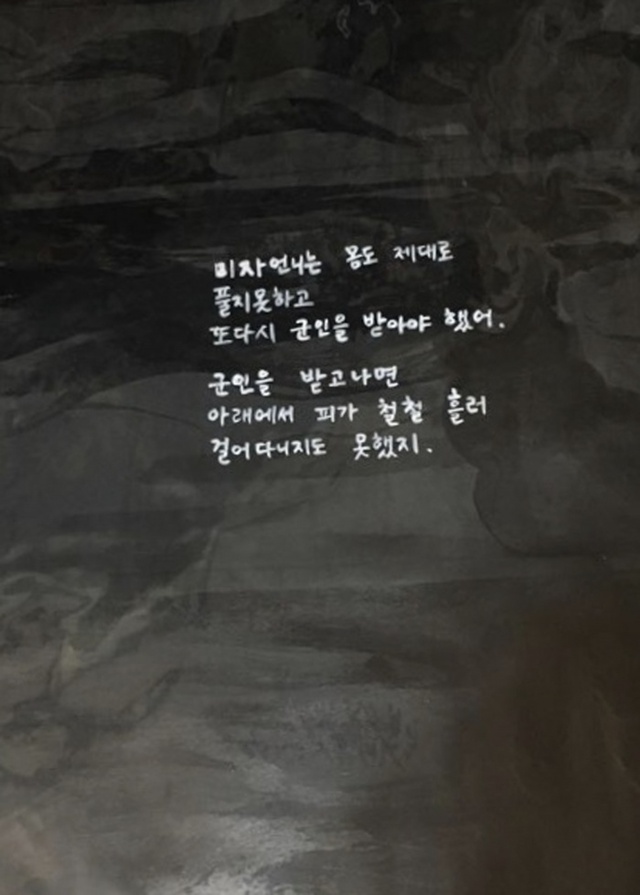 미자언니는 몸도 제대로
풀지못하고
또다시 군인을 받아야 했어.
군인을 받고나면
아래에서 피가 철철 흘러
걸어다니지도 못했지.